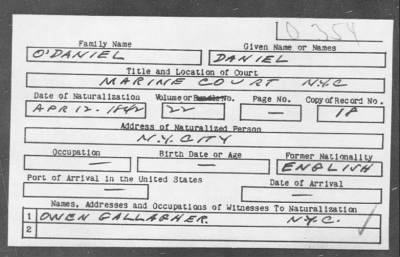 O 354
Family Name Given Name or Names
O'DANIEL DANIEL
Title and Location of Court
MARINE COURT N.Y.C
Date of Naturalization Volume or Bundle No. Page No. Copy of Record No.
APR 12. 1842 22 — 18
Address of Naturalized Person
N.Y. CITY
Occupation Birth Date or Age Former Nationality
— — ENGLISH
Port of Arrival in the United States Date of Arrival
— —
Names, Addresses and Occupations of Witnesses To Naturalization
1 OWEN GALLAGHER. N.Y.C.
2